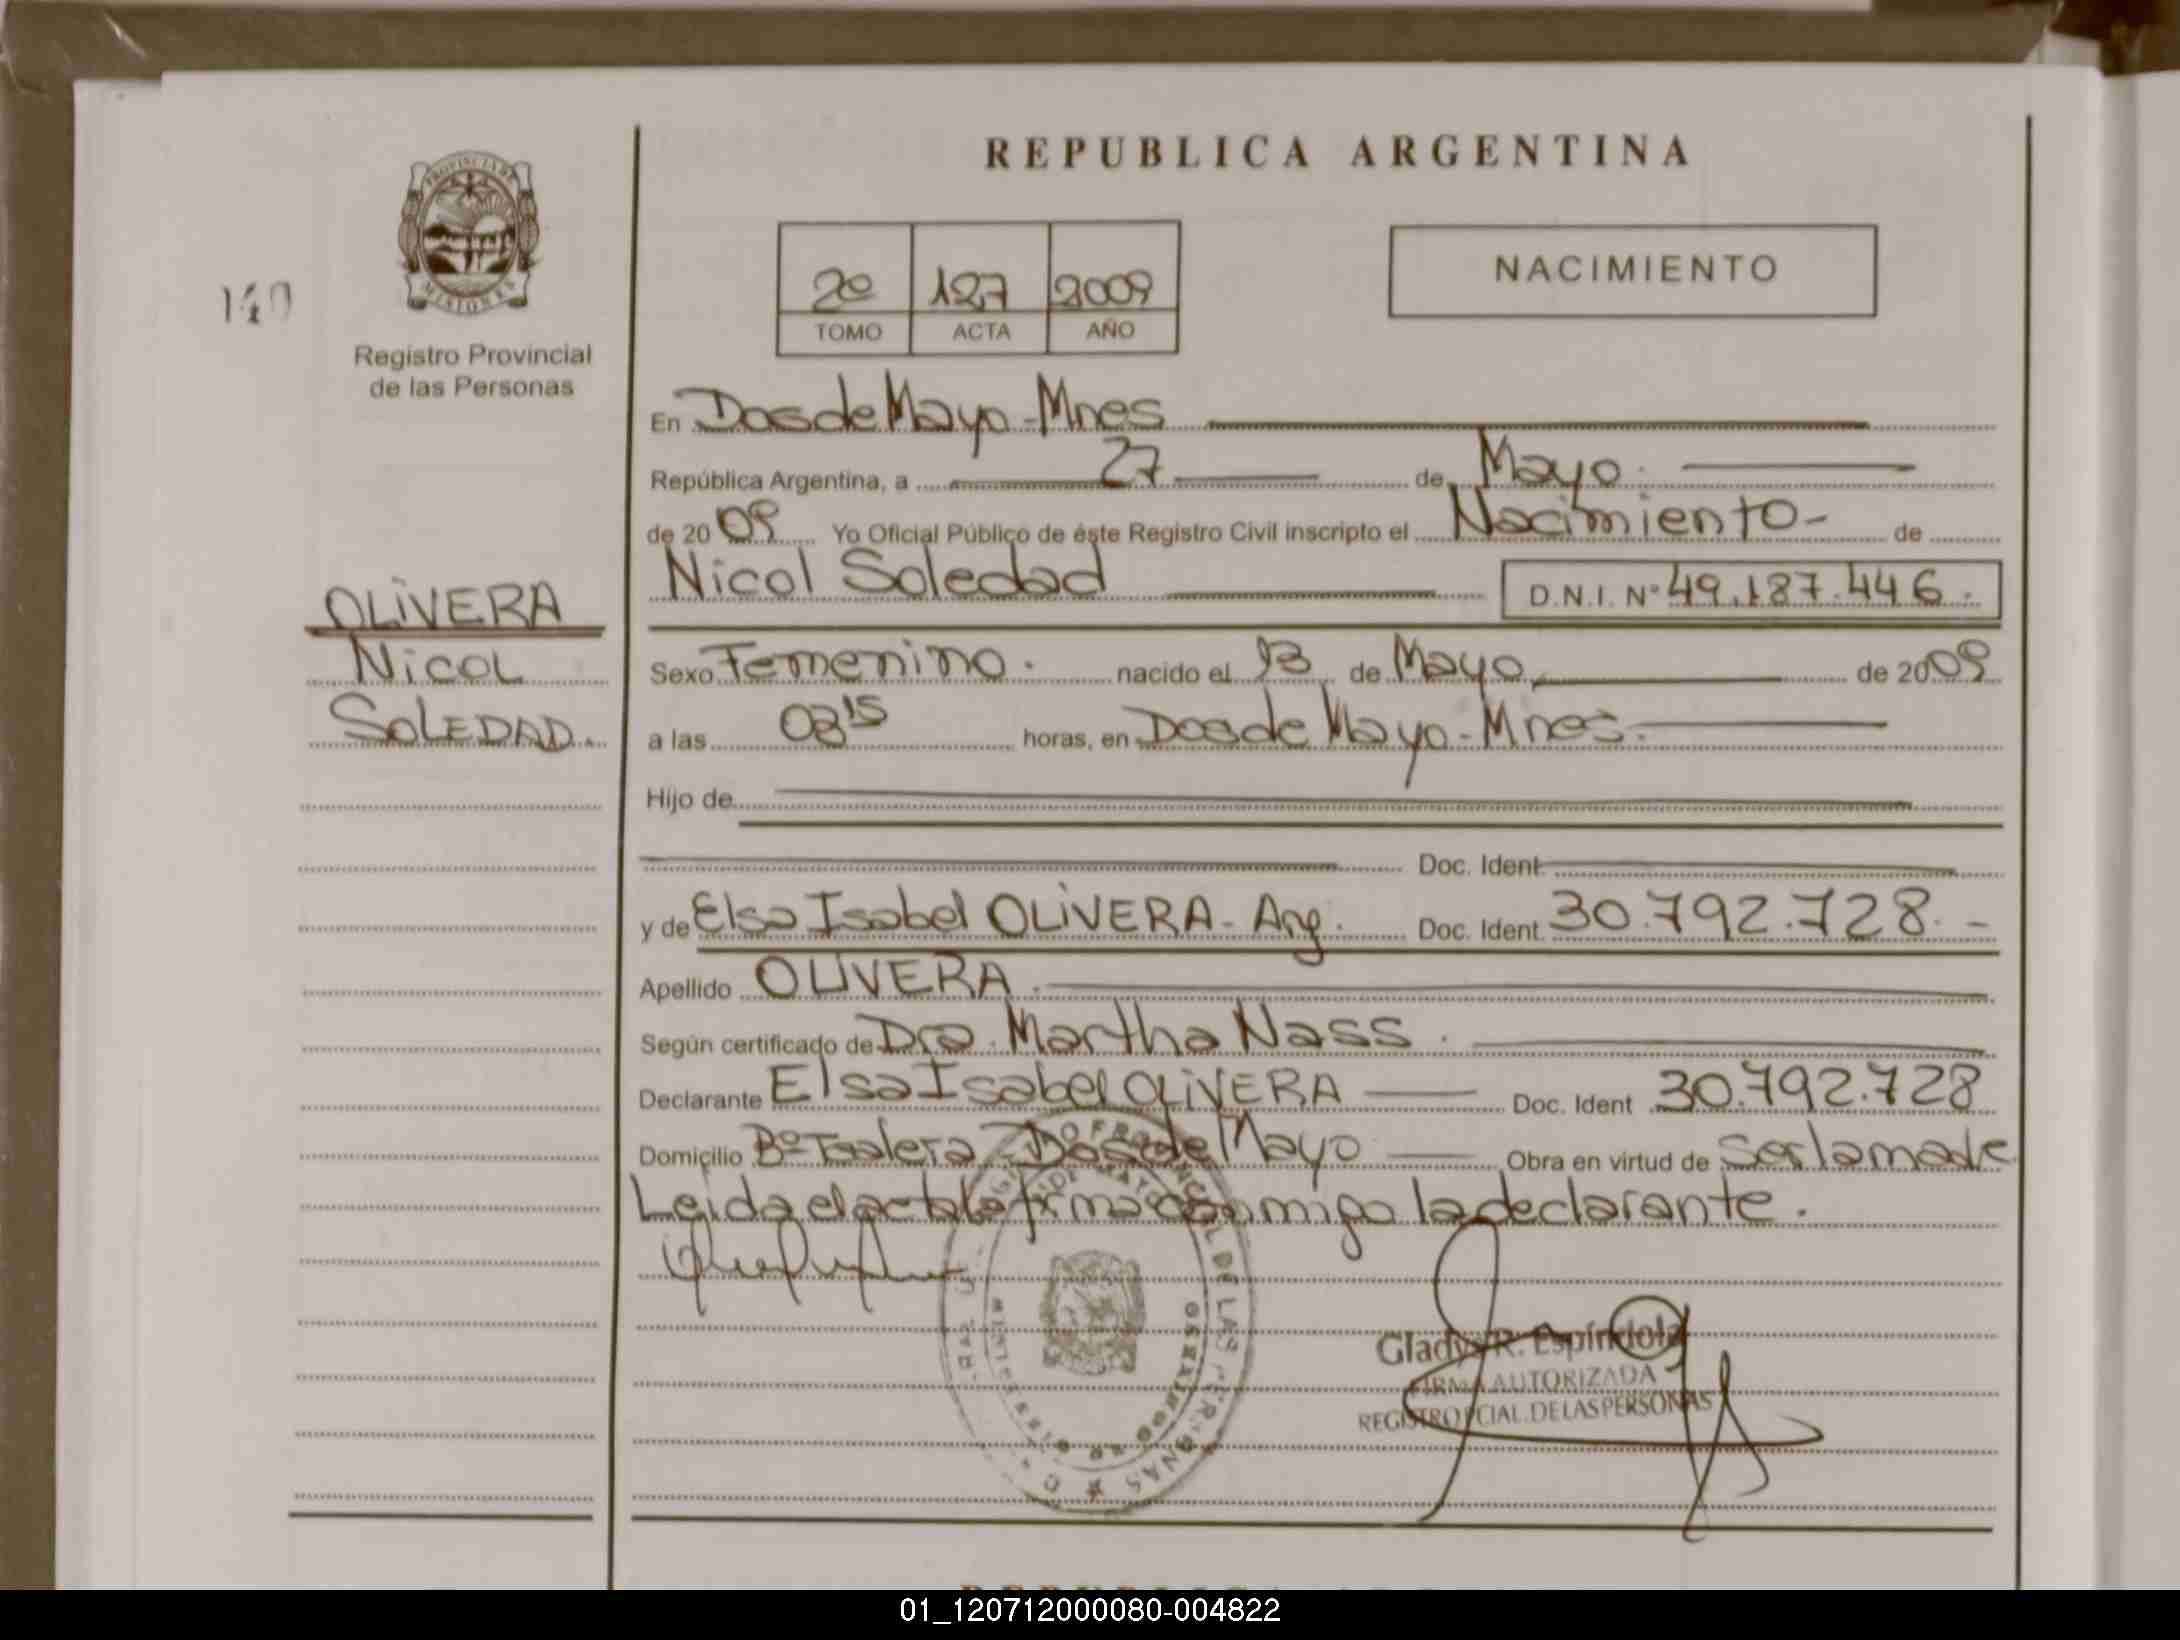 REPUBLICA ARGENTINA
PROVINCIA DE
MISIONES
140
Registro Provincial
de las Personas
2º 127 2009
TOMO ACTA AÑO
NACIMIENTO
En Dos de Mayo - Mnes
República Argentina, a 27 de Mayo.
de 2009 Yo Oficial Público de éste Registro Civil inscripto el Nacimiento - de
Nicol Soledad D.N.I. Nº 49.187.446.
OLIVERA
NICOL
SOLEDAD.
Sexo Femenino. nacido el 13 de Mayo de 2009
a las 03 15 horas, en Dos de Mayo - Mnes.
Hijo de
Doc. Ident.
y de Elsa Isabel OLIVERA - Arg. Doc. Ident. 30.792.728. -
Apellido OLIVERA.
Según certificado de Dra. Martha Nass.
Declarante Elsa Isabel OLIVERA Doc. Ident 30.792.728
Domicilio Bº Dos de Mayo Obra en virtud de Ser la madre
Leida el acta la firma conmigo la declarante.
Gladys R. Espíndola
FIRMA AUTORIZADA
REGISTRO PCIAL. DE LAS PERSONAS
01_120712000080-004822